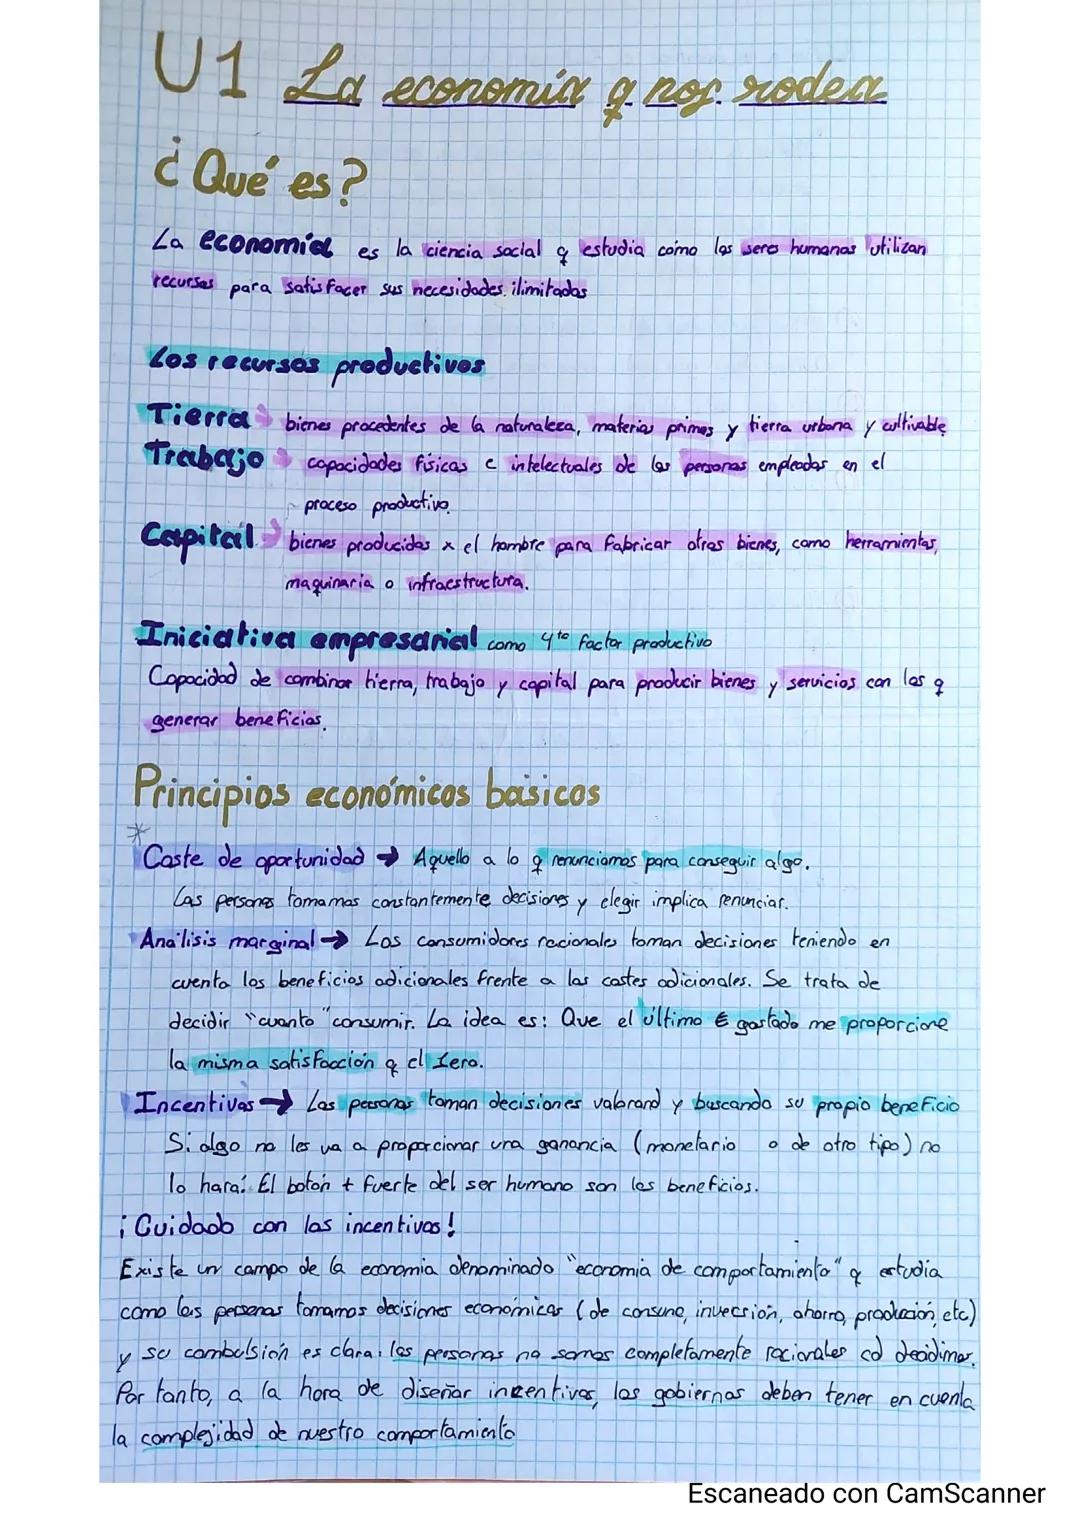 U1 La economía q nos rodea
¿Qué es?
La economía es la ciencia social q estudia como los seres humanos utilizan
recursos para satisfacer sus necesidades ilimitadas
Los recursos productivos
Tierra → bienes procedentes de la naturaleza, materias primas y tierra urbana y cultivable
Trabajo → capacidades físicas e intelectuales de las personas empleadas en el
proceso productivo.
Capital → bienes producidos x el hombre para fabricar otros bienes, como herramientas,
maquinaria o infraestructura.
Iniciativa empresarial como 4to factor productivo
Capacidad de combinar tierra, trabajo y capital para producir bienes y servicios con los q
generar beneficios.
Principios económicos básicos
* Coste de oportunidad → Aquello a lo q renunciamos para conseguir algo.
Las personas tomamos constantemente decisiones y elegir implica renunciar.
Análisis marginal → Los consumidores racionales toman decisiones teniendo en
cuenta los beneficios adicionales frente a los costes adicionales. Se trata de
decidir "cuanto" consumir. La idea es: Que el último € gastado me proporcione
la misma satisfacción q el 1ero.
Incentivos → Las personas toman decisiones valorand y buscando su propio beneficio
Si algo no les va a proporcionar una ganancia (monetario o de otro tipo) no
lo hará. El botón + fuerte del ser humano son los beneficios.
¡Cuidado con los incentivos!
Existe un campo de la economia denominado "economia de comportamiento" q estudia
como las personas tomamos decisiones económicas (de consumo, inversión, ahorro, producción, etc)
y su conbulsión es clara: las personas no somos completamente racionales al decidimos.
Por tanto, a la hora de diseñar incentivos, los gobiernos deben tener en cuenta
la complejidad de nuestro comportamiento
Escaneado con CamScanner